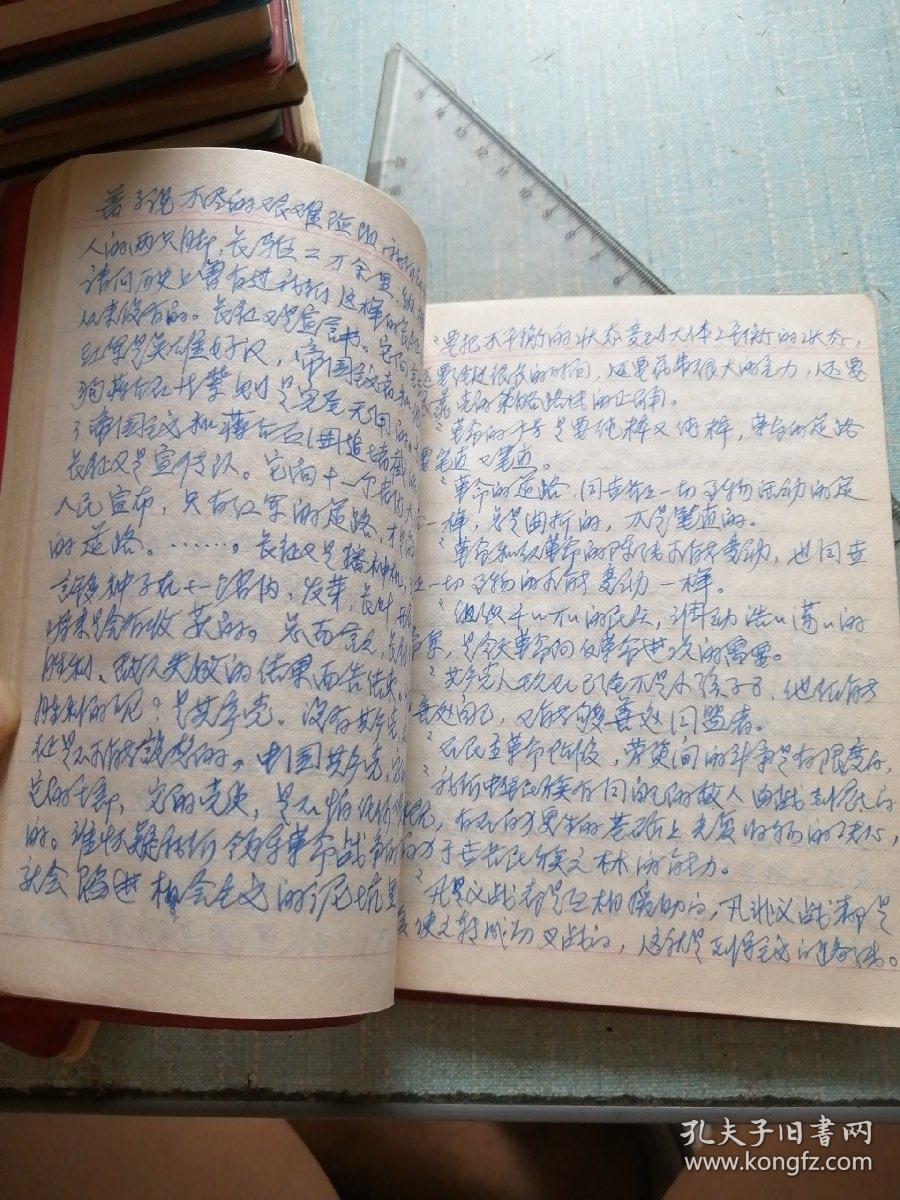 着了说不尽的艰难险阻，我们
人的两只脚，长驱二万余里，纵
请问历史上曾有过我们这样的长征
从来没有的。长征又是宣言书。它向全
红军是英雄好汉，帝国主义者和他
狗蒋介石等辈则是完全无用的。
了帝国主义和蒋介石围追堵截的
长征又是宣传队。它向十一个省
人民宣布，只有红军的道路，才是
的道路。……。长征又是播种机，
许多种子在十一个省内，发芽、长叶、开
将来是会有收获的。总而言之，长征
胜利、敌人失败的结果而告结束。
胜利的呢？是共产党。没有共产党，
征是不可能设想的。中国共产党，它
它的干部，它的党员，是不怕任何
的。谁怀疑我们领导革命战争的
就会陷进机会主义的泥坑里
要把不平衡的状态变到大体上平衡的状态，
还要经过很长的时间，还要花费很大的气力，还要
依靠党的策略路线的正确。
革命的力量是要纯粹又纯粹，革命的道路
要笔直又笔直。
革命的道路，同世界上一切事物活动的道
一样，总是曲折的，不是笔直的。
革命和反革命的阵线可能变动，也同世
上一切事物的可能变动一样。
组织千千万万的民众，调动浩浩荡荡的
革命军，是今天革命向反革命进攻的需要。
共产党人现在已经不是小孩子了，他们能
善处自己，又能够善处同盟者。
在民主革命阶段，劳资间的斗争是有限度的，
我们中华民族有同自己的敌人血战到底的
气概，有在自力更生的基础上光复旧物的决心，
有自立于世界民族之林的能力。
凡是义战都是互相援助的，凡非义战都是
应该使之转成为义战的，这就是列宁主义的路线。
孔夫子旧书网
www.kongfz.com